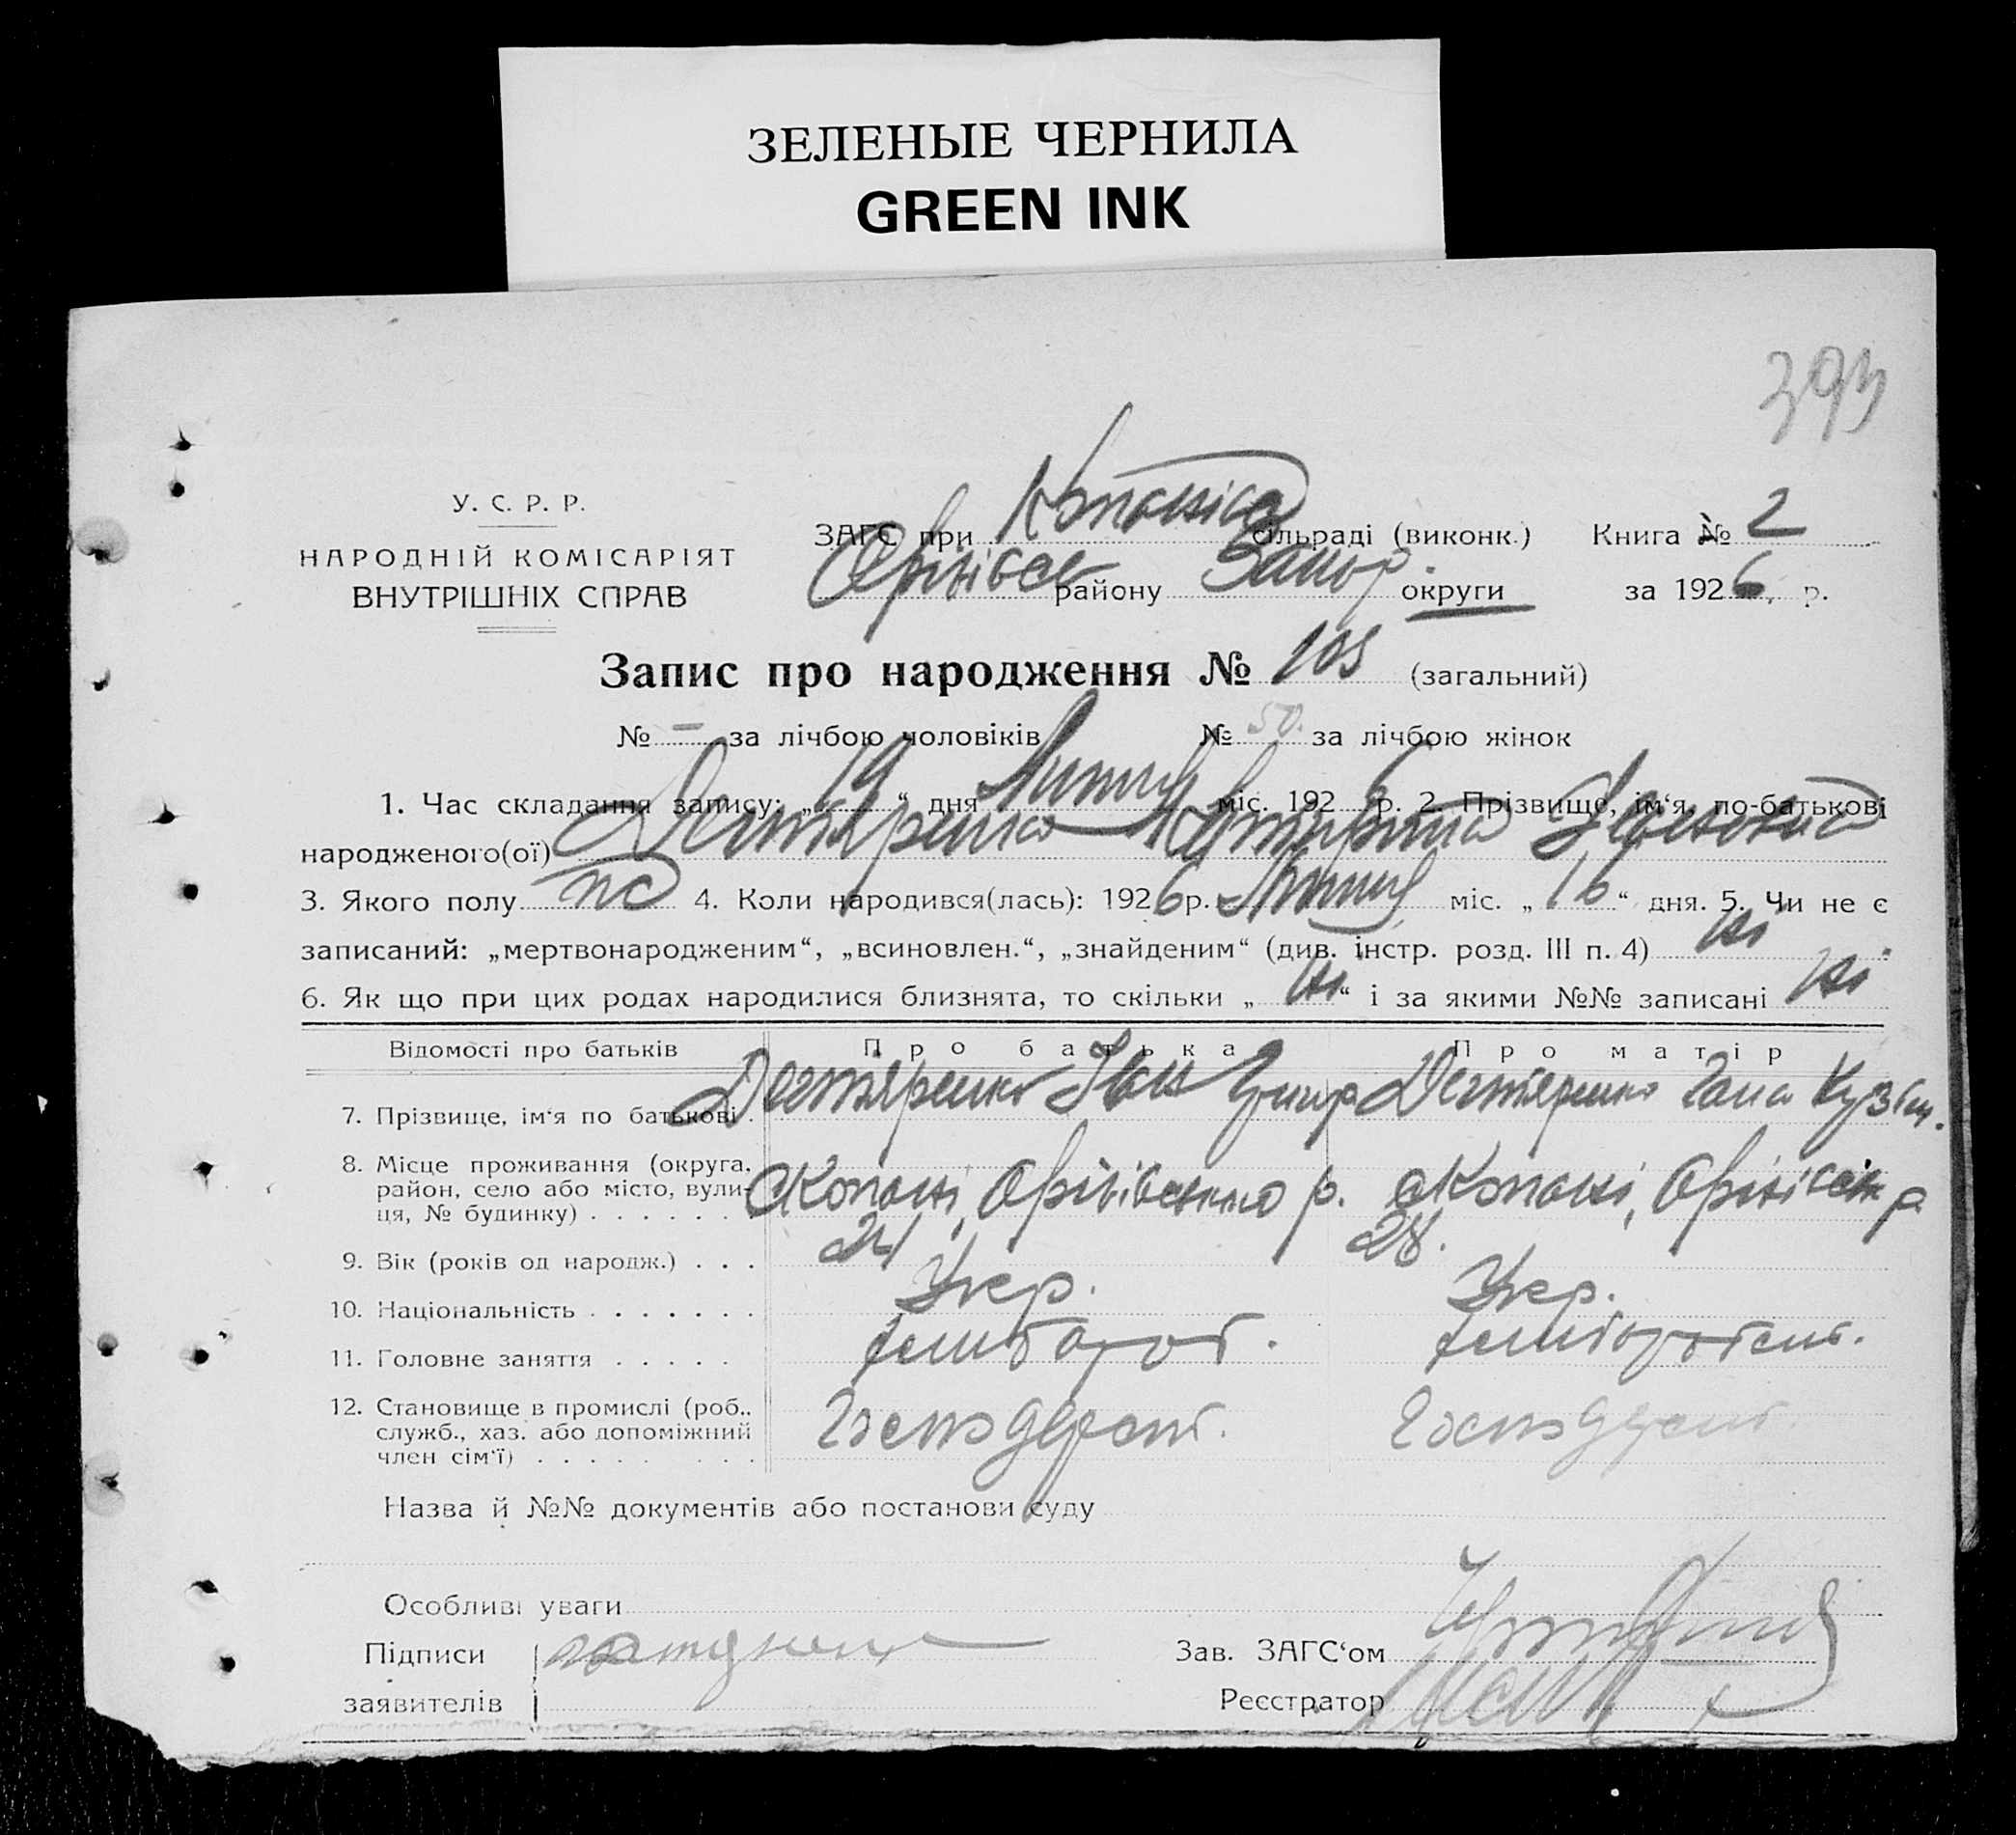 ЗЕЛЕНЫЕ ЧЕРНИЛА
GREEN INK
393
У. С. Р. Р.
НАРОДНІЙ КОМІСАРІЯТ
ВНУТРІШНІХ СПРАВ
ЗАГС при сільраді (виконк.) Книга № 2
району Запор. округи за 1926 р.
Запис про народження № 105 (загальний)
№ – за лічбою чоловіків № 50. за лічбою жінок
1. Час складання запису: „19“ дня Липня міс. 1926 р. 2. Прізвище, ім‘я, по-батькові
народженого(ої) Дегтяренко Катерина
3. Якого полу 4. Коли народився(лась): 1926 р. Липня міс. „16“ дня. 5. Чи не є
записаний: „мертвонародженим“, „всиновлен.“, „знайденим“ (див. інстр. розд. III п. 4) ні
6. Як що при цих родах народилися близнята, то скільки „ні“ і за якими №№ записані ні
Відомості про батьків Про батька Про матір
7. Прізвище, ім‘я по батькові. Дегтяренко Іван Дегтяренко Гана Кузьм.
8. Місце проживання (округа, район, село або місто, вулиця, № будинку) . . . . . . с Копані, Оріхівського р. с Копані, р
9. Вік (років од народж.) . . . 24 28.
10. Національність . . . . . . . Укр. Укр.
11. Головне заняття . . . . .
12. Становище в промислі (роб., служб., хаз. або допоміжний член сім‘ї) . . . . . . . .
Назва й №№ документів або постанови суду
Особливі уваги
Підписи Зав. ЗАГС‘ом
заявителів Реєстратор